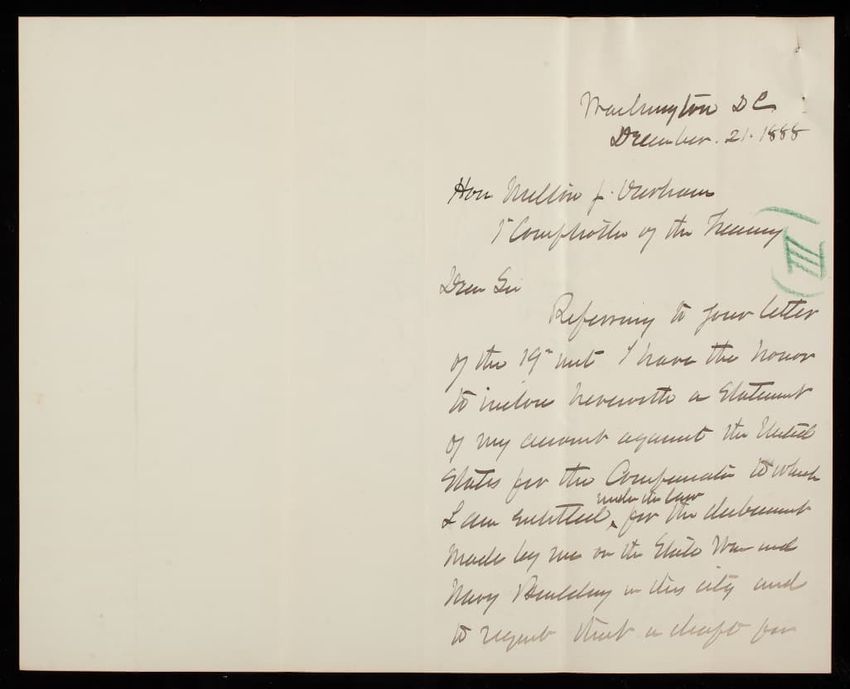 Washington DC.
December. 21. 1888
Hon Milton J. Durham
1st Comptroller of the Treasury
(III)
Dear Sir
Referring to your letter
of the 19th inst I have the honor
to inclose herewith a Statement
of my account against the United
States for the Compensation to which
I am entitled under the law for the disbursement
made by me on the State War and
Navy Building in this city and
to request that a draft for